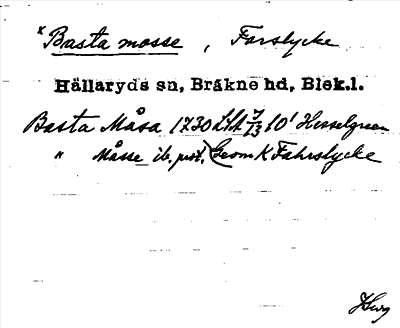 * Basta mosse , Forslycke
Hällaryds sn, Bräkne hd, Blek.l.
Basta Måsa 1730 LSA 7/13 10' Hesselgreen
" Måsse ib. prot.) Geom K Fahrslycke